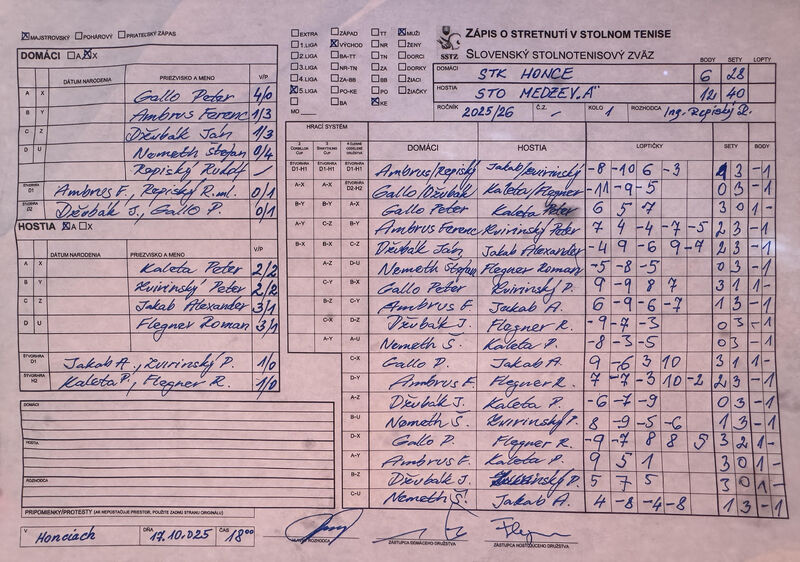 MAJSTROVSKÝ POHÁROVÝ PRIATEĽSKÝ ZÁPAS
DOMÁCI A X
DÁTUM NARODENIA PRIEZVISKO A MENO V/P
A X Gallo Peter 4/0
B Y Ambrus Ferenc 1/3
C Z Džubák Ján 1/3
D U Nemeth Štefan 0/4
Repiský Rudolf
ŠTVORHRA D1 Ambrus F., Repiský R. ml. 0/1
ŠTVORHRA D2 Džubák J., Gallo P. 0/1
HOSTIA A X
DÁTUM NARODENIA PRIEZVISKO A MENO V/P
A X Kaleta Peter 2/2
B Y Kvirinský Peter 2/2
C Z Jakab Alexander 3/1
D U Flegner Roman 3/1
ŠTVORHRA D1 Jakab A., Kvirinský P. 1/0
ŠTVORHRA H2 Kaleta P., Flegner R. 1/0
DOMÁCI
HOSTIA
ROZHODCA
PRIPOMIENKY/PROTESTY (AK NEPOSTAČUJE PRIESTOR, POUŽITE ZADNÚ STRANU ORIGINÁLU)
V Honciach DŇA 17.10.025 ČAS 18 00
EXTRA ZÁPAD TT MUŽI
1.LIGA VÝCHOD NR ŽENY
2.LIGA BA-TT TN DORCI
3.LIGA NR-TN ZA DORKY
4.LIGA ZA-BB BB ŽIACI
5.LIGA KE-PO PO ŽIAČKY
BA KE
MO
SSTZ
ZÁPIS O STRETNUTÍ V STOLNOM TENISE
SLOVENSKÝ STOLNOTENISOVÝ ZVÄZ
BODY SETY LOPTY
DOMÁCI STK HONCE 6 28
HOSTIA STO MEDZEV „A" 12 40
ROČNÍK 2025/26 Č.Z. KOLO 1 ROZHODCA Ing. Repiský R.
HRACÍ SYSTÉM
DOMÁCI HOSTIA LOPTIČKY SETY BODY
ŠTVORHRA D1-H1 ŠTVORHRA D1-H1 ŠTVORHRA D1-H1 Ambrus/Repiský Jakab/Kvirinský -8 -10 6 -3 1 3 -1
A-X A-X ŠTVORHRA D2-H2 Gallo/Džubák Kaleta/Flegner -11 -9 -5 0 3 -1
B-Y B-Y A-X Gallo Peter Kaleta Peter 6 5 7 3 0 1 -
A-Y C-Z B-Y Ambrus Ferenc Kvirinský Peter 7 4 -4 -7 -5 2 3 -1
B-X B-X C-Z Džubák Ján Jakab Alexander -4 9 -6 9 -7 2 3 -1
A-Z D-U Nemeth Štefan Flegner Roman -5 -8 -5 0 3 -1
C-Y B-X Gallo Peter Kvirinský P. 9 -9 8 7 3 1 1 -
B-Z C-Y Ambrus F. Jakab A. 6 -9 -6 -7 1 3 -1
C-X D-Z Džubák J. Flegner R. -9 -7 -3 0 3 -1
A-Y A-U Nemeth Š. Kaleta P. -8 -3 -5 0 3 -1
C-X Gallo P. Jakab A. 9 -6 3 10 3 1 1 -
D-Y Ambrus F. Flegner R. 7 -7 -3 10 -2 2 3 -1
A-Z Džubák J. Kaleta P. -6 -7 -9 0 3 -1
B-U Nemeth Š. Kvirinský P. 8 -9 -5 -6 1 3 -1
D-X Gallo P. Flegner R. -9 -7 8 8 5 3 2 1 -
A-Y Ambrus F. Kaleta P. 9 5 1 3 0 1 -
B-Z Džubák J. Kvirinský P. 5 7 5 3 0 1 -
C-U Nemeth Š. Jakab A. 4 -8 -4 -8 1 3 -1
ZÁSTUPCA DOMÁCEHO DRUŽSTVA
ZÁSTUPCA HOSŤUJÚCEHO DRUŽSTVA